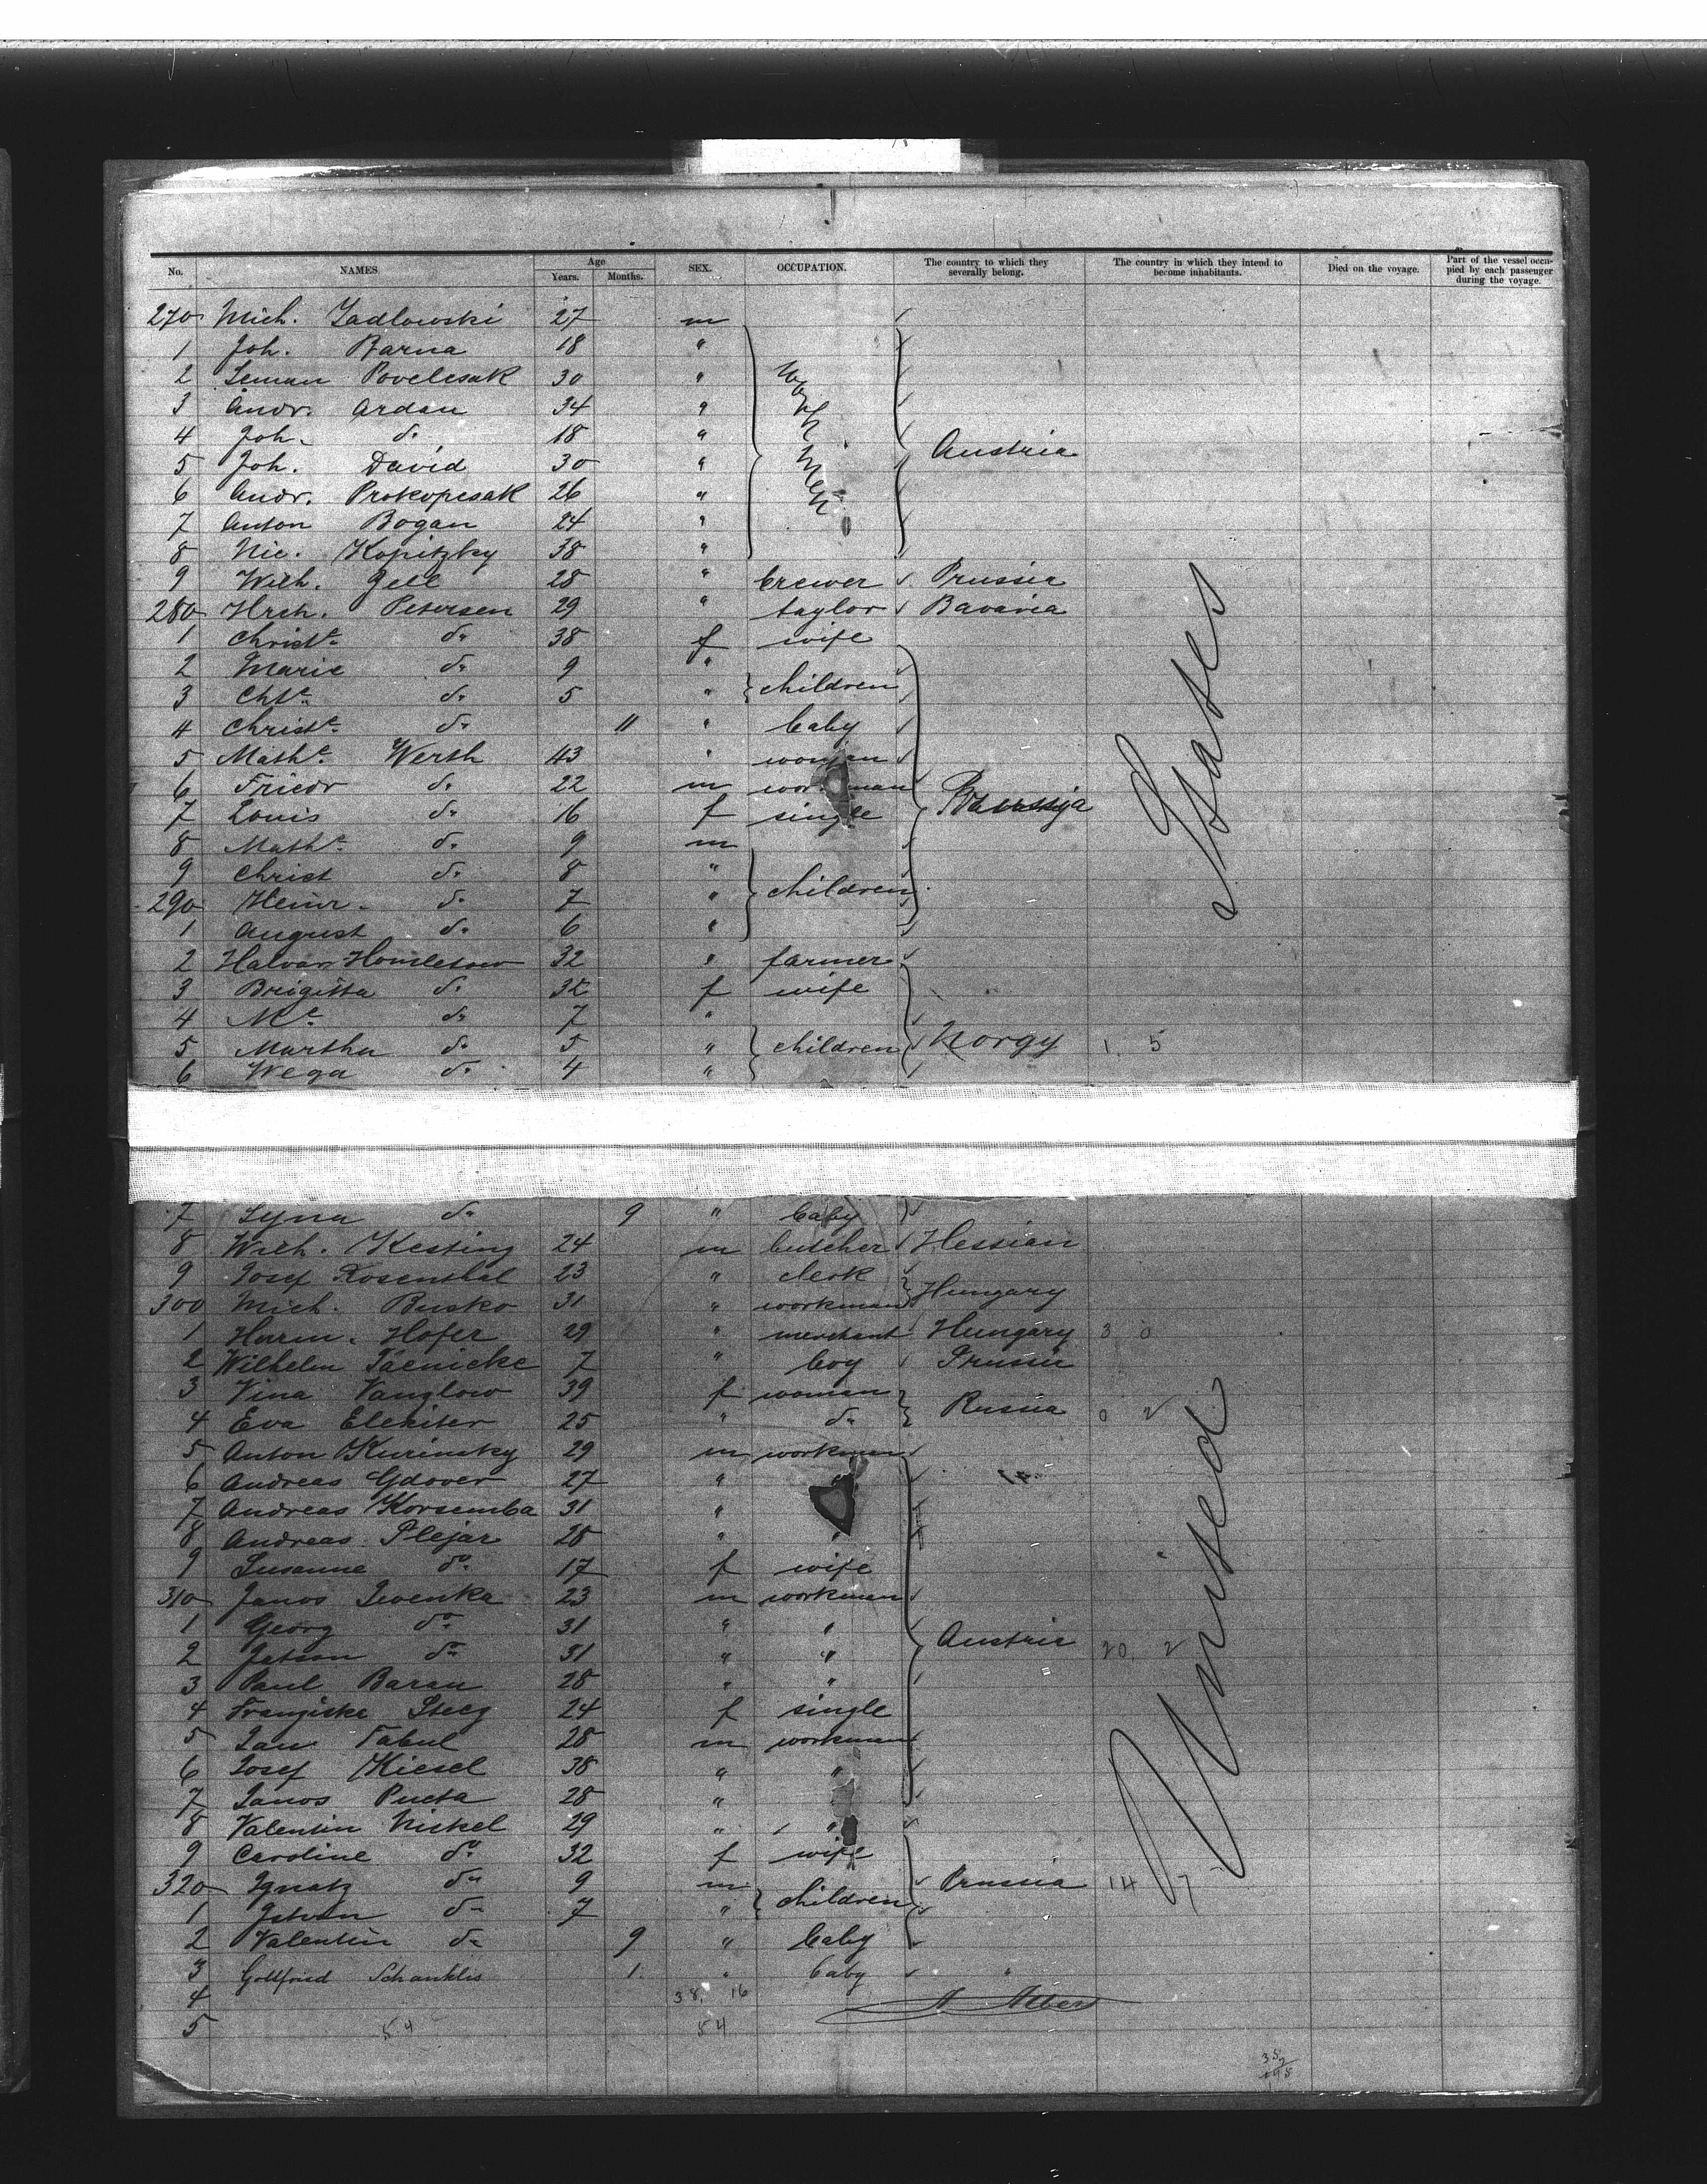 No. NAMES Age Years. Months. SEX. OCCUPATION. The country to which they severally belong. The country in which they intend to become inhabitants. Died on the voyage. Part of the vessel occupied by each passenger during the voyage.
270 Mich. Zadlowski 27 m
1 Joh. Barna 18 "
2 Seman Povelesak 30 "
3 Andr. Ardan 34 "
4 Joh. do 18 " Workmen Austria
5 Joh. David 30 "
6 Andr. Prokopesak 26 "
7 Anton Bogan 24 "
8 Nic. Kopitzky 38 "
9 Wilh. Gell 28 " brewer Prussia
280 Hrch. Petersen 29 " taylor Bavaria
1 Christe do 38 f wife
2 Marie do 9 "
3 Chte do 5 " children
4 Christe do 11 " baby
5 Mathe Werth 43 " woman
6 Friedr do 22 m workman
7 Louis do 16 f single
8 Mathe do 9 m
9 Christ do 8 "
290 Heinr. do 7 " children
1 August do 6 "
2 Halvar 32 " farmer
3 Brigitta do 32 f wife
4 Me do 7 "
5 Martha do 5 " children Norgy 1. 5
6 Wega do 4 "
7 Syna do 9 " baby
8 Wilh. Kesting 24 m butcher Hessian
9 Josef Rosenthal 23 " clerk
300 Mich. Busko 31 " workman Hungary
1 Herm. Hofer 29 " merchant Hungary 3 0
2 Wilhelm Jaenicke 7 " boy Prussia
3 Vina Vanglow 39 f woman
4 Eva Elekiter 25 " do Russia 0 2
5 Anton Kurinsky 29 m workman
6 Andreas Gdover 27 "
7 Andreas Korsemba 31 "
8 Andreas Plejar 28 " "
9 Susanne do 17 f wife
310 Janos Lwenka 23 m workman
1 Georg do 31 " "
2 Jetson do 31 " " Austria 20. 2
3 Paul Baran 28 " "
4 Franziska Steeg 24 f single
5 Jan Tabul 28 m workman
6 Josef Kiesel 38 " "
7 Janos Pucta 28 "
8 Valentin Nickel 29 " "
9 Caroline do 32 f wife
320 Ignatz do 9 m Prussia 14 7
1 Istvan do 7 " children
2 Valentin do 9 " baby
3 Gottfried Schanklis 1. " baby "
4 38. 16 A. Albers
5 54 54
United States